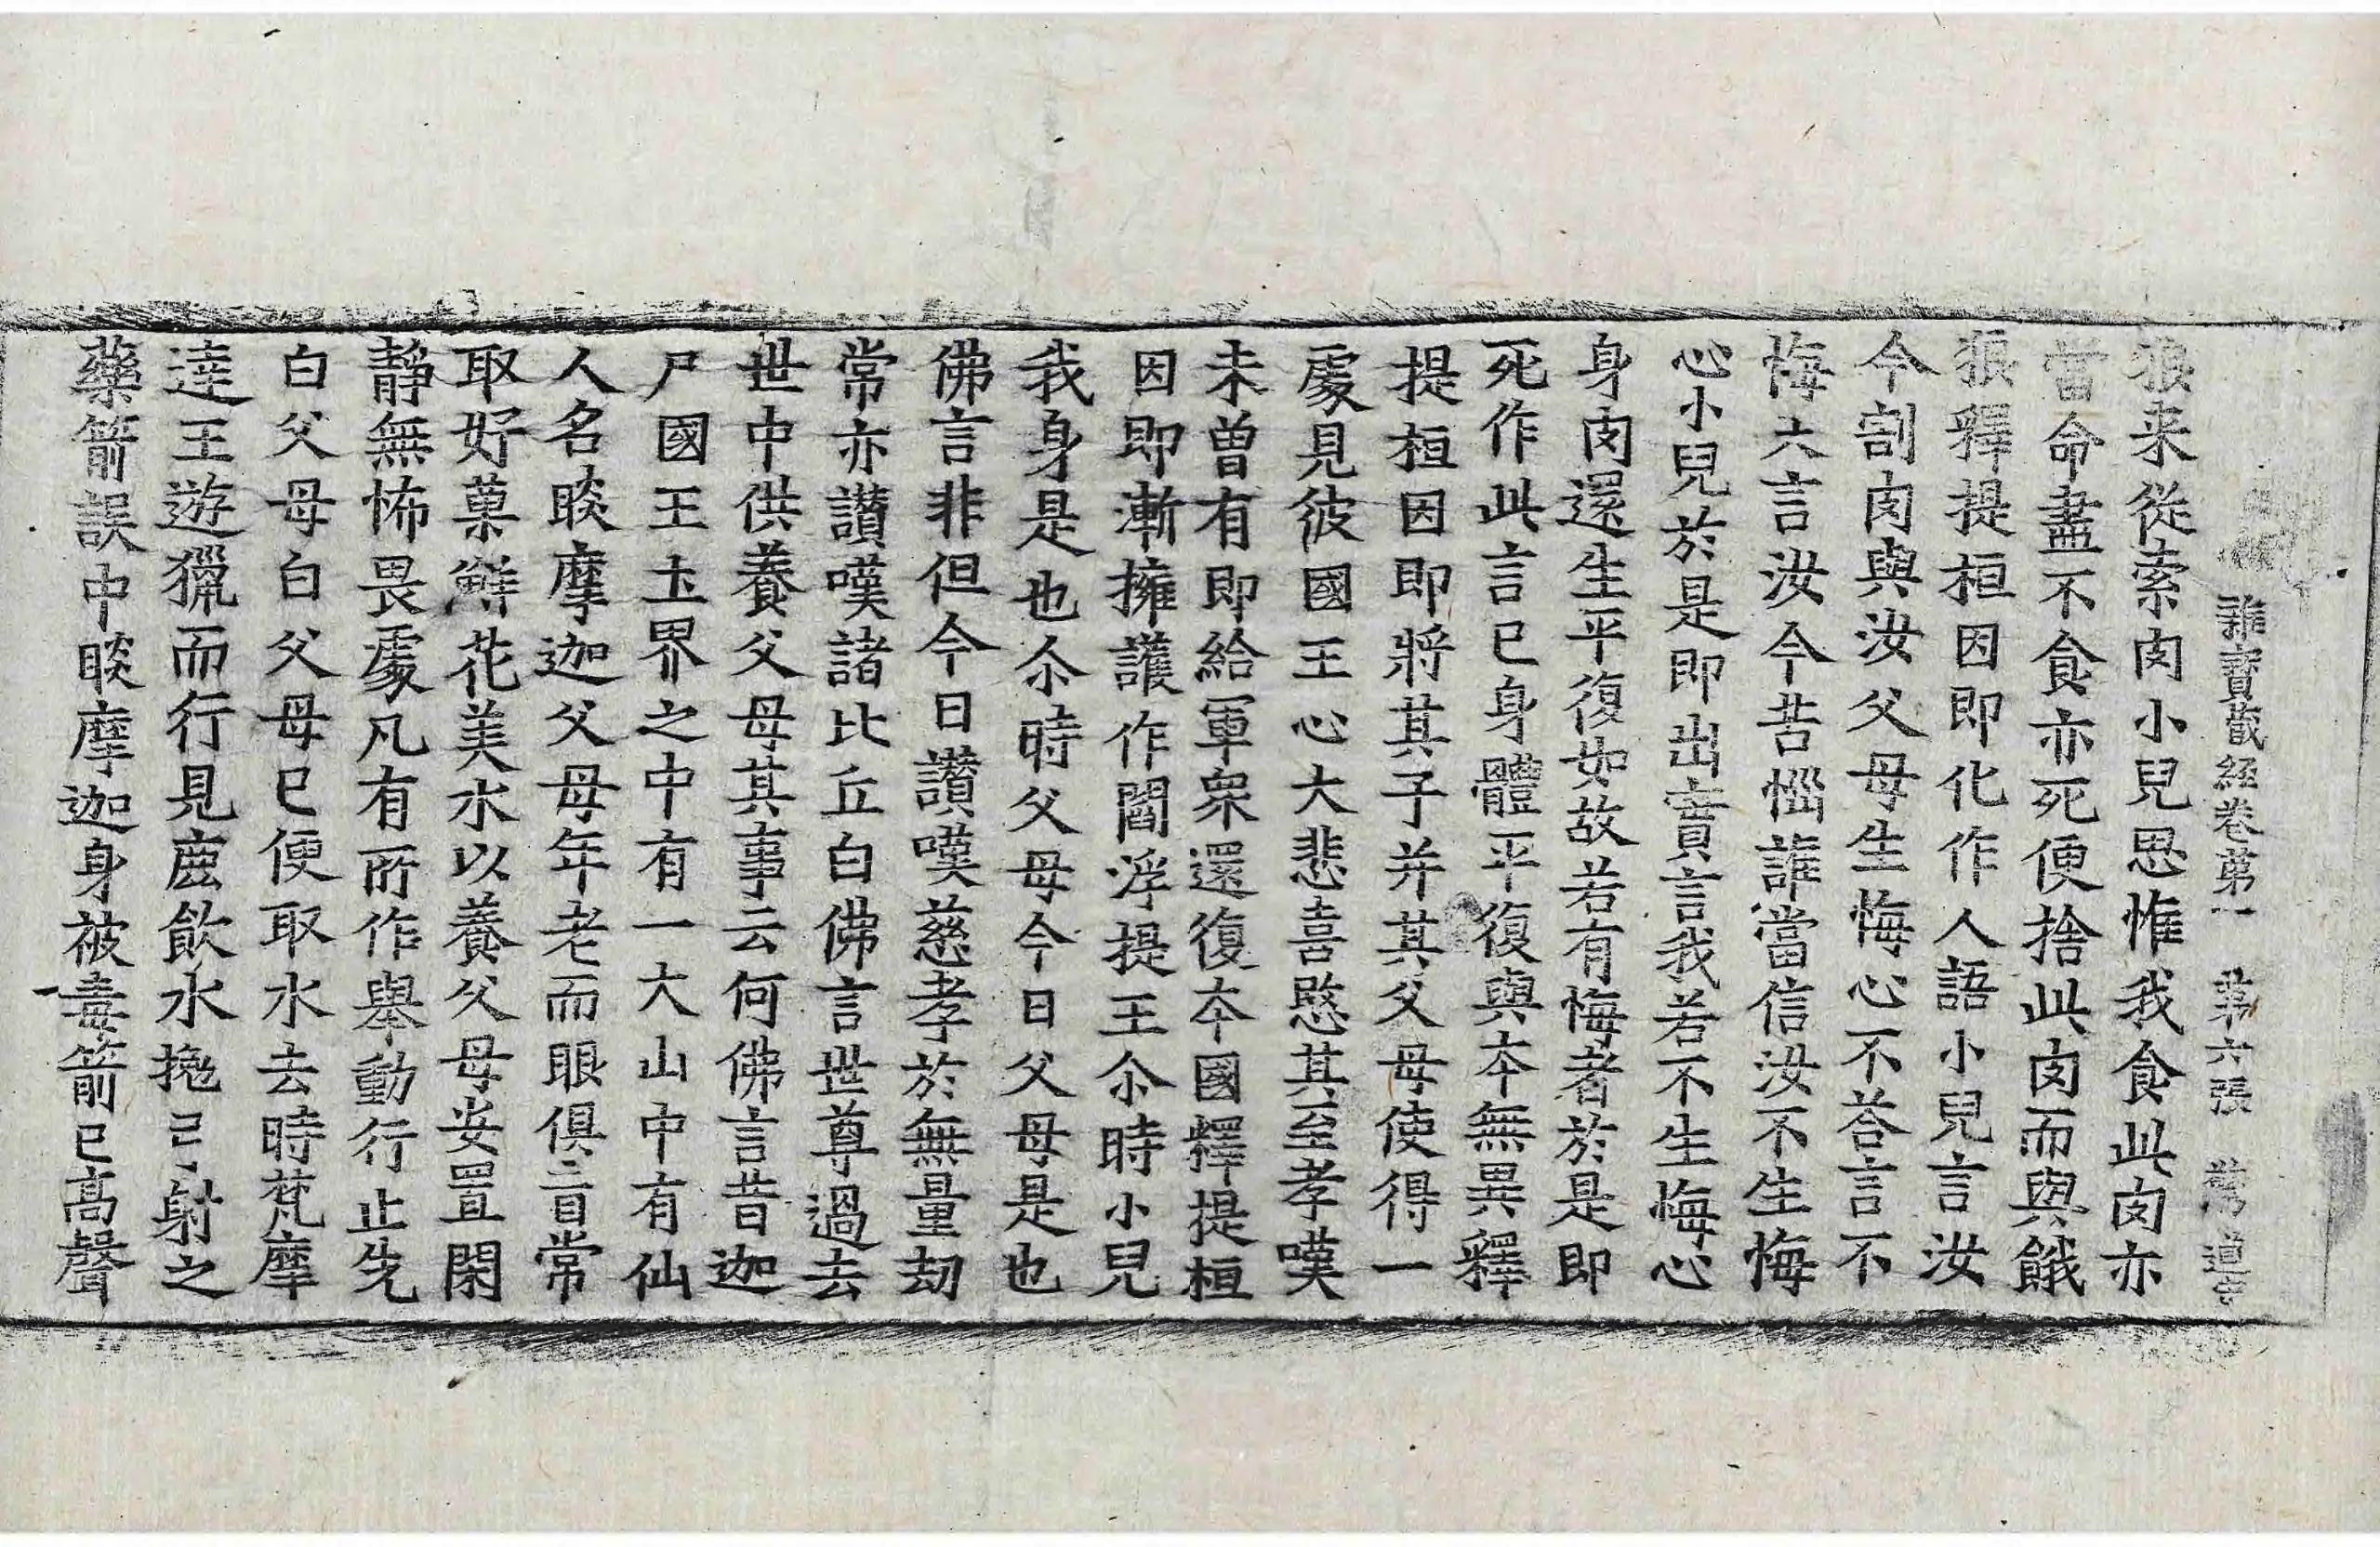 雜寶蔵經卷苐一　苐六張　道
狼来從索肉小兒思惟我食此肉亦
當命盡不食亦死便捨此肉而與餓
狼釋提桓因即化作人語小兒言汝
今割肉與汝父母生悔心不荅言不
悔六言汝今苦惱誰當信汝不生悔
心小兒於是即出實言我若不生悔心
身肉還生平復如故若有悔者於是即
死作此言已身體平復與夲無異釋
提桓因即將其子并其父母使得一
處見彼國王心大悲喜愍其至孝嘆
未曾有即給軍衆還復夲國釋提桓
因即漸擁護作閻浮提王尒時小兒
我身是也尒時父母今日父母是也
佛言非但今日讃嘆慈孝於無量劫
常亦讃嘆諸比丘白佛言世尊過去
世中供養父母其事云何佛言昔迦
尸國王土界之中有一大山中有仙
人名睒摩迦父母年老而眼俱盲常
取好菓鮮花美水以養父母安置閑
静無怖畏處凡有所作舉動行止先
白父母白父母已便取水去時梵摩
逹王遊獵而行見鹿飲水挽弓射之
藥箭誤中睒摩迦身被毒箭已髙聲